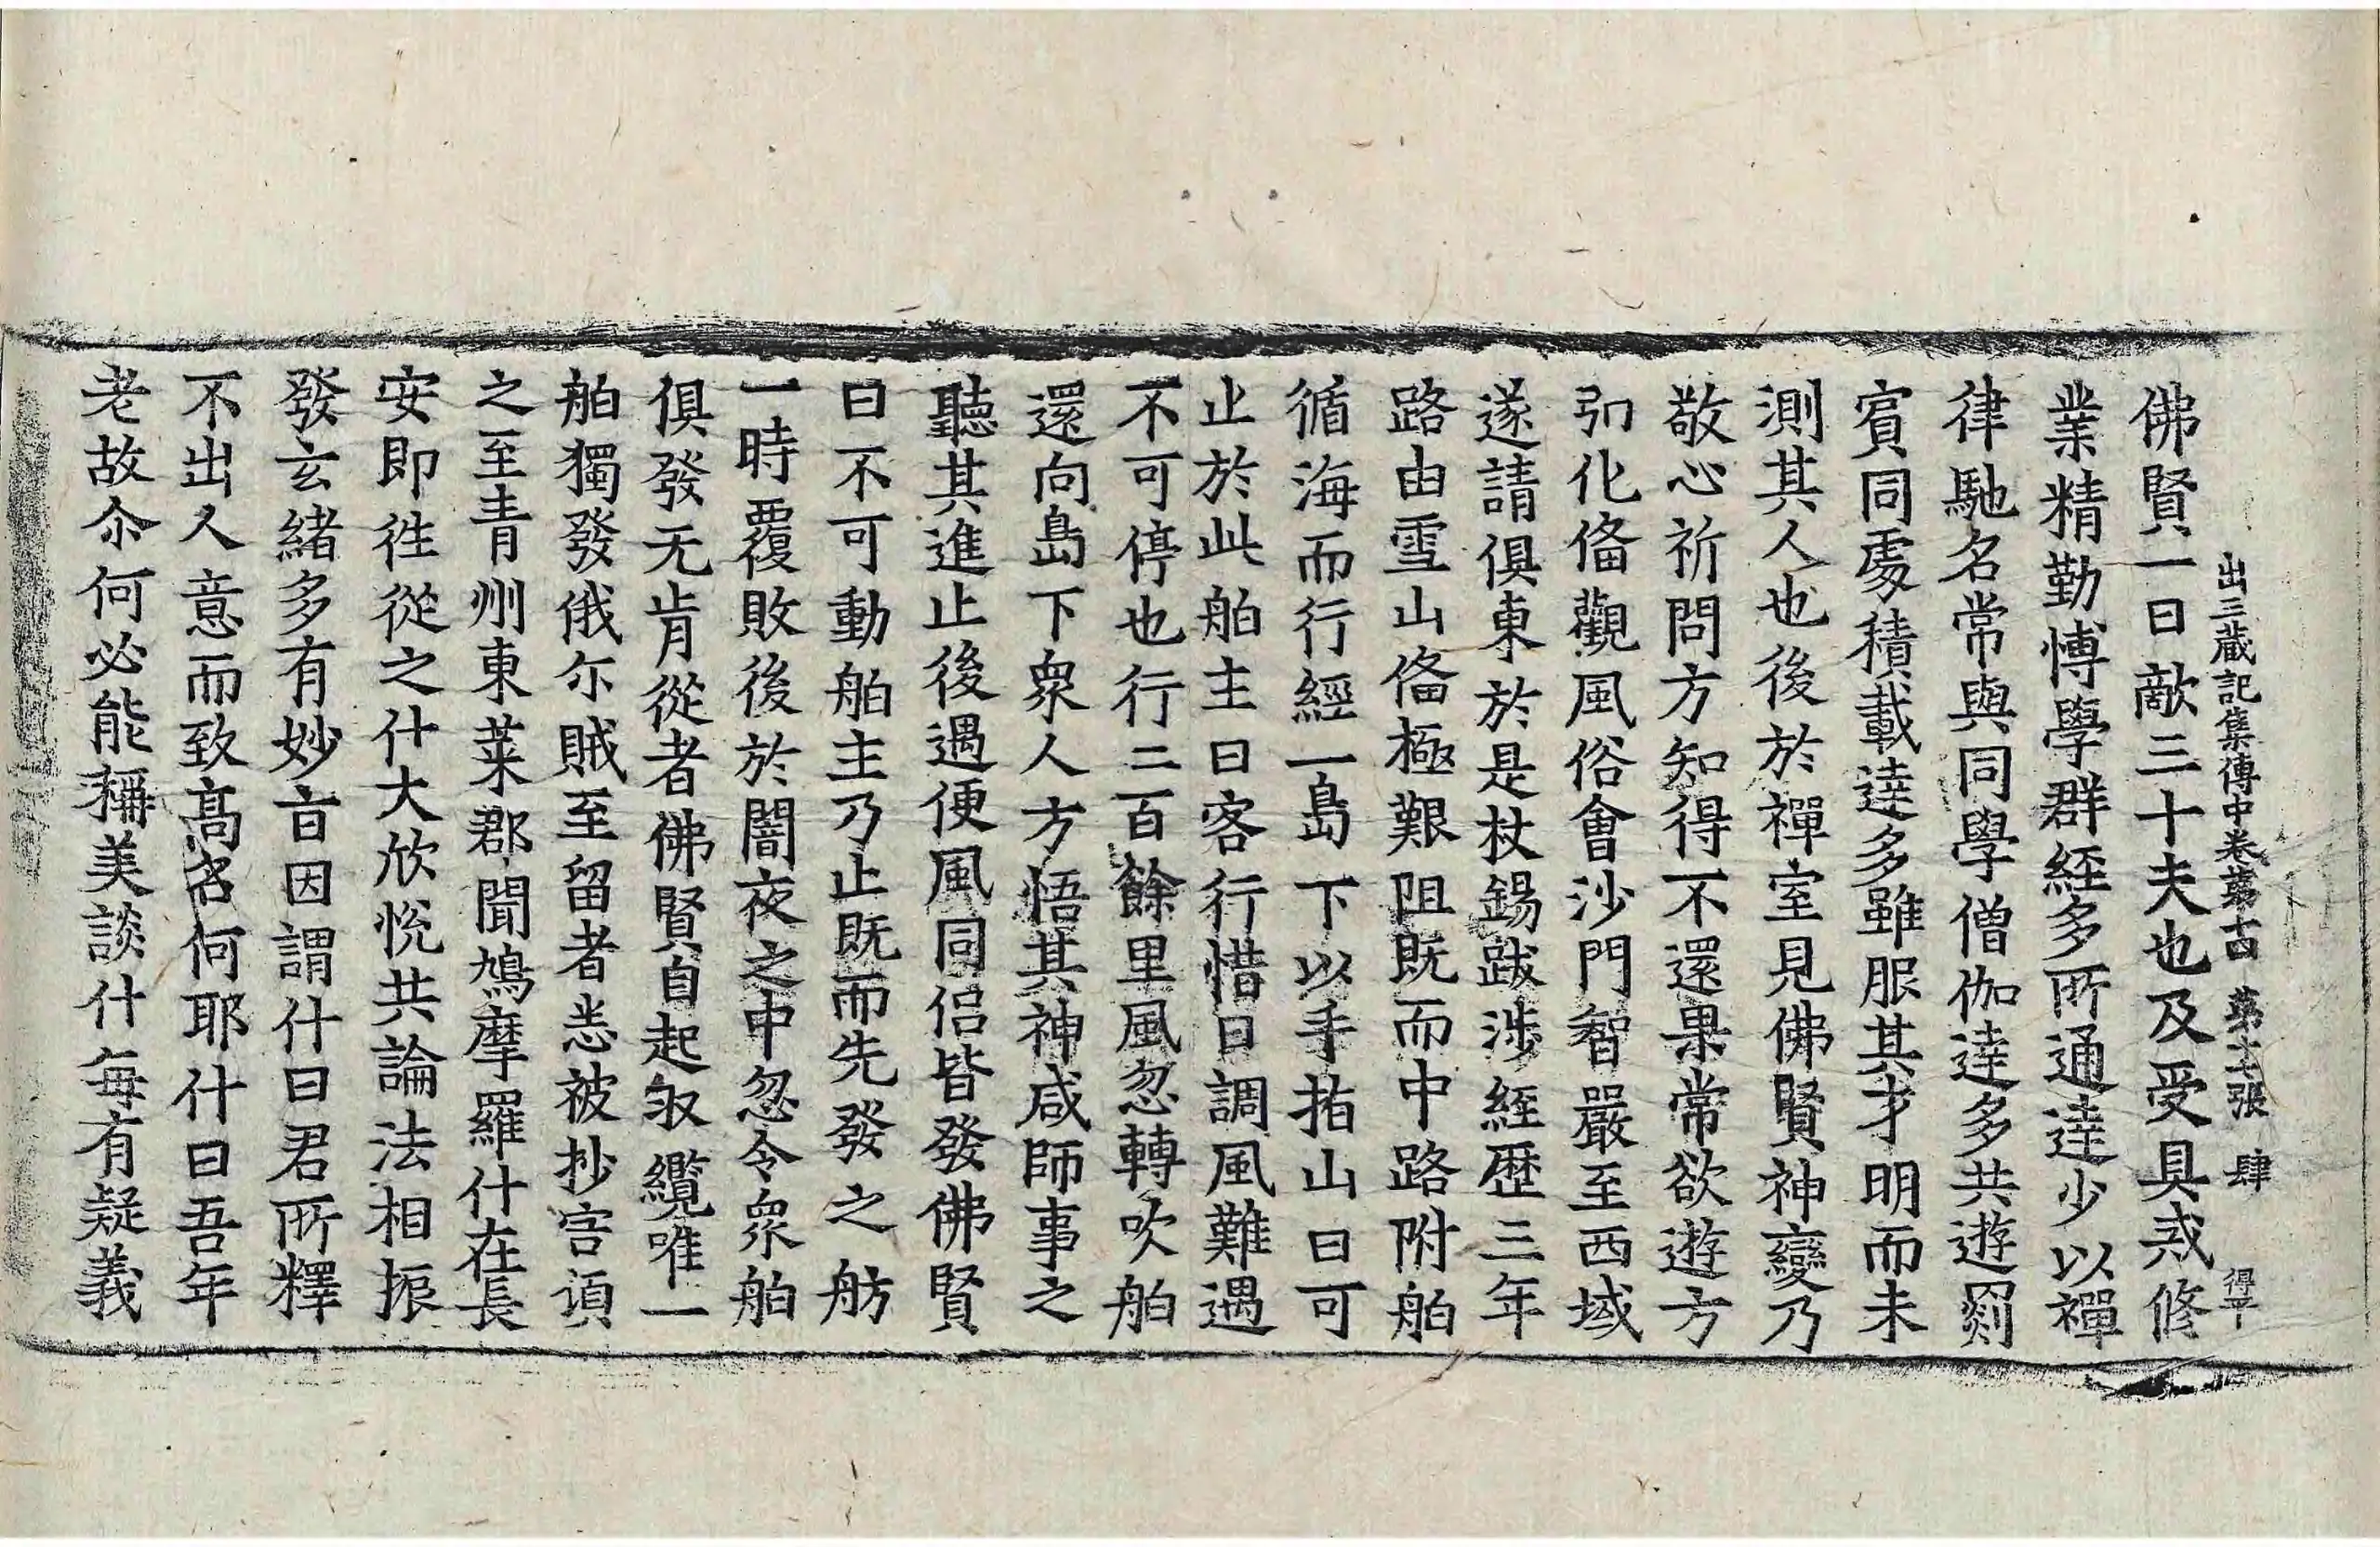 出三藏記集傳中卷第十四 第十七張 肆 得平
佛賢一日敵三十夫也及受具戒修
業精勤愽學群経多所通達少以禪
律馳名常與同學僧伽達多共遊罽
賓同處積載達多雖服其才明而未
測其人也後於禪室見佛賢神變乃
敬心祈問方知得不還果常欲遊方
引化俻觀風俗會沙門智嚴至西域
遂請俱東於是杖錫跋渉経歷三年
路由雪山俻極艱阻既而中路附舶
循海而行經一島下以手指山曰可
止於此舶主曰客行惜日調風難遇
不可停也行二百餘里風忽轉吹舶
還向島下衆人方悟其神咸師事之
聽其進止後遇便風同侶皆發佛賢
曰不可動舶主乃止既而先發之舫
一時覆敗後於闇夜之中忽令衆舶
俱發无肯從者佛賢自起収纜唯一
舶獨發俄尒賊至留者悉被抄害頃
之至青州東萊郡聞鳩摩羅什在長
安即徃從之什大欣悅共論法相振
發玄緒多有妙㫖因謂什曰君所釋
不出人意而致髙名何耶什曰吾年
老故尒何必能稱美談什每有疑義